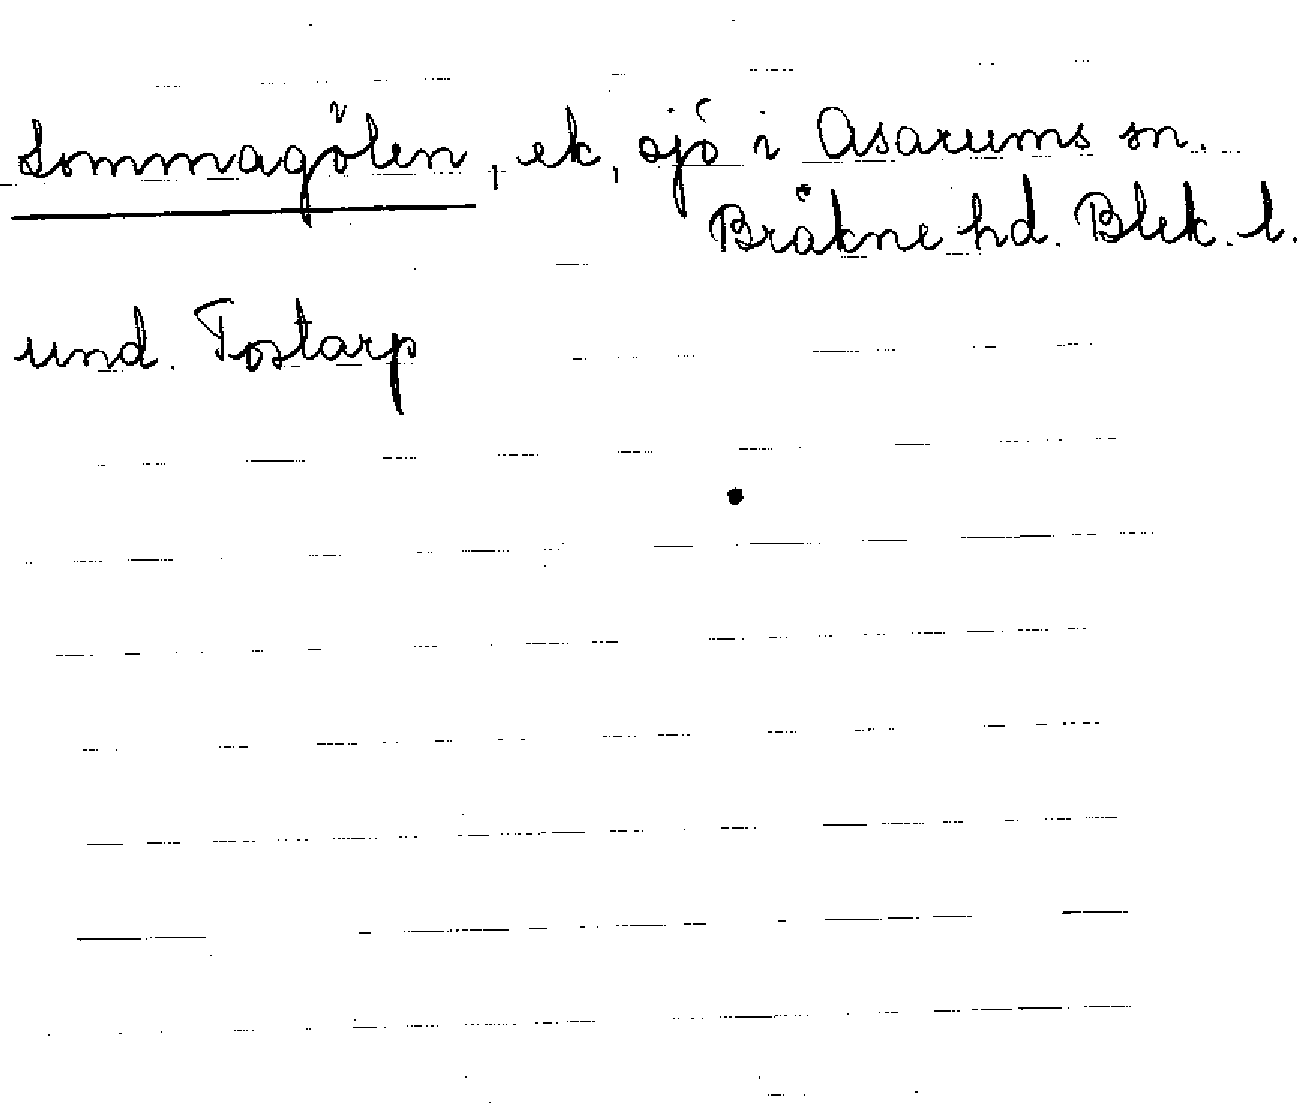 Lommagölen, ek, sjö i Asarums sn.
Bräkne hd. Blek. l.
und. Tostarp